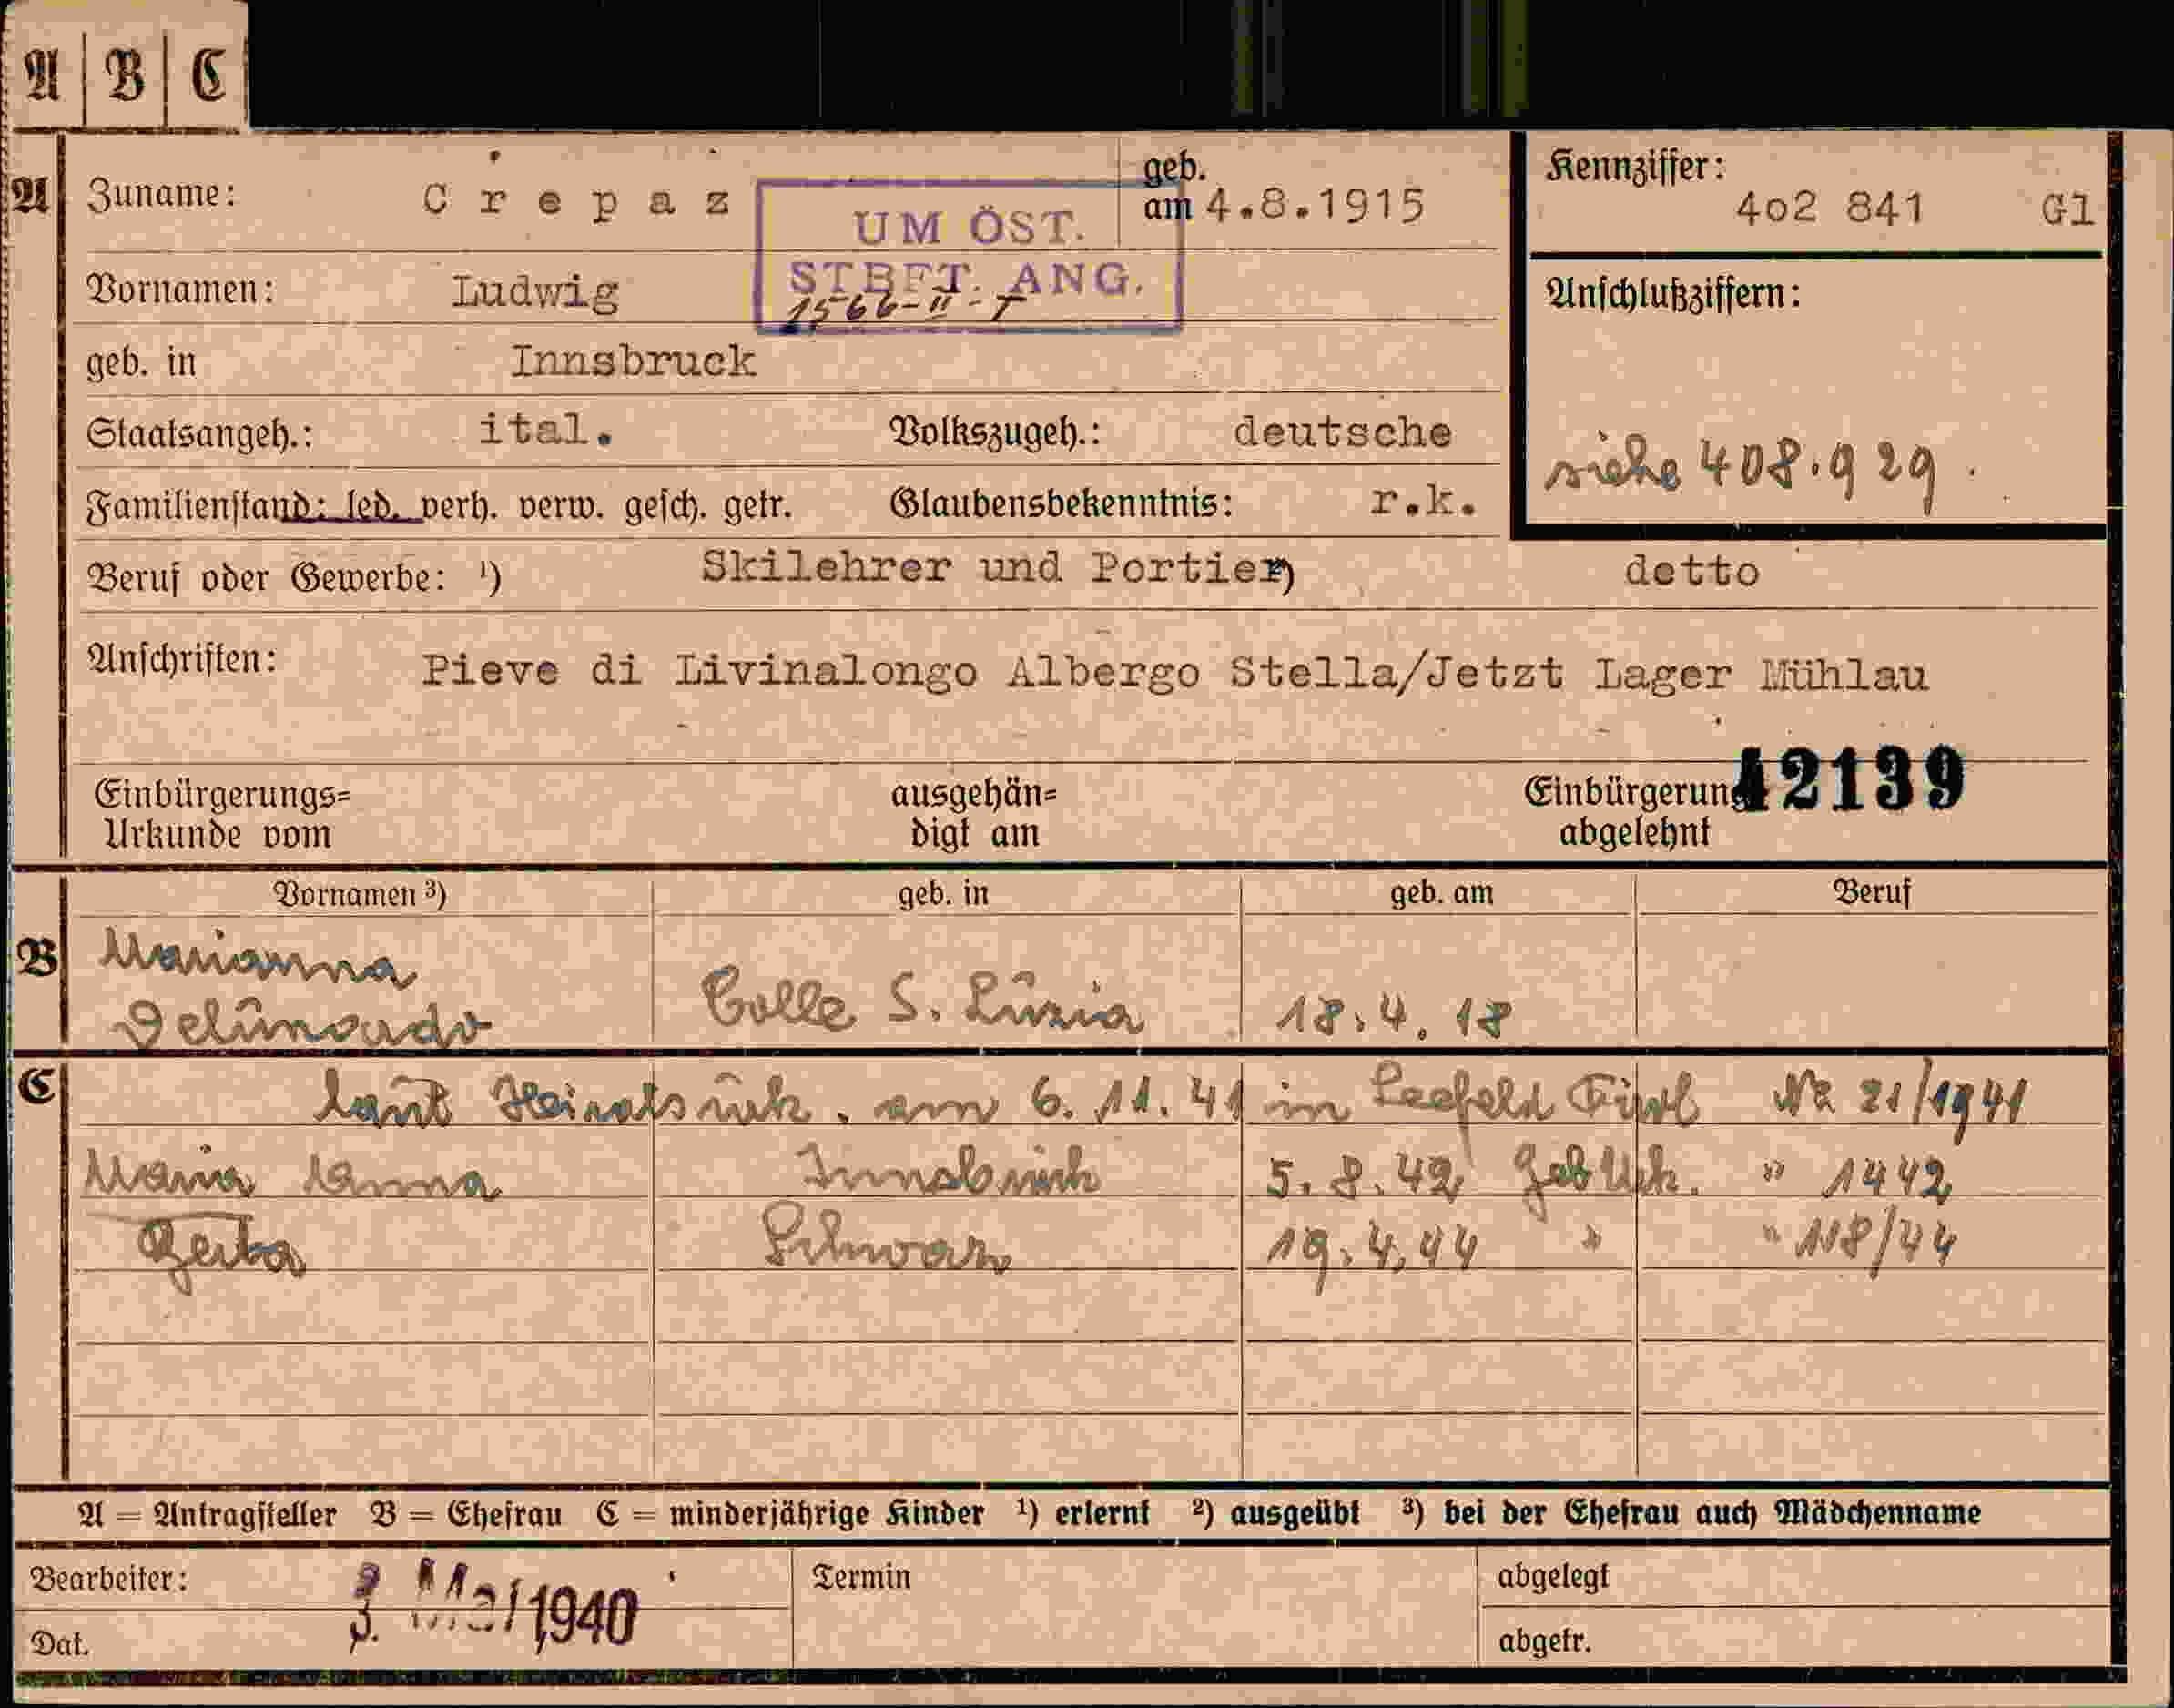 A B C
A Zuname: Crepaz geb. am 4.8.1915 Kennziffer: 402 841 Gl
UM ÖST.
STBFT. ANG.
1566-II-T
Vornamen: Ludwig Anschlußziffern:
geb. in Innsbruck
Staatsangeh.: ital. Volkszugeh.: deutsche
siehe 408.929.
Familienstand: led. verh. verw. gesch. getr. Glaubensbekenntnis: r.k.
Beruf oder Gewerbe: ¹) Skilehrer und Portier) detto
Anschriften: Pieve di Livinalongo Albergo Stella/Jetzt Lager Mühlau
42139
Einbürgerungs= ausgehän= Einbürgerung
Urkunde vom digt am abgelehnt
Vornamen ³) geb. in geb. am Beruf
B Marianna
Colle S. Luzia 18.4.18
C laut Heiratsurk. am 6.11.41 in Seefeld Tirol Nr 21/1941
Maria Anna Innsbruck 5.8.42 Geb Urk. " 1442
Schwaz 19.4.44 " " 118/44
A = Antragsteller B = Ehefrau C = minderjährige Kinder ¹) erlernt ²) ausgeübt ³) bei der Ehefrau auch Mädchenname
Bearbeiter: Termin abgelegt
3. Mai 1940
Dat. abgetr.